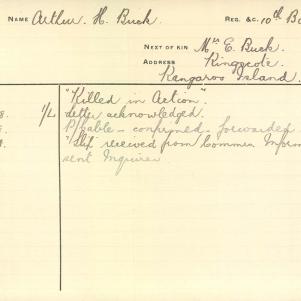 NAME Arthur H. Buck. REG. &C. 10th Ba
NEXT OF KIN Mrs E. Buck.
ADDRESS Kingscote.
Kangaroo Island.
"Killed in Action".
8. 1/L Letter acknowledged.
P/Cable - confirmed - forwarded
Slip received from Common Inform
sent Inquirer